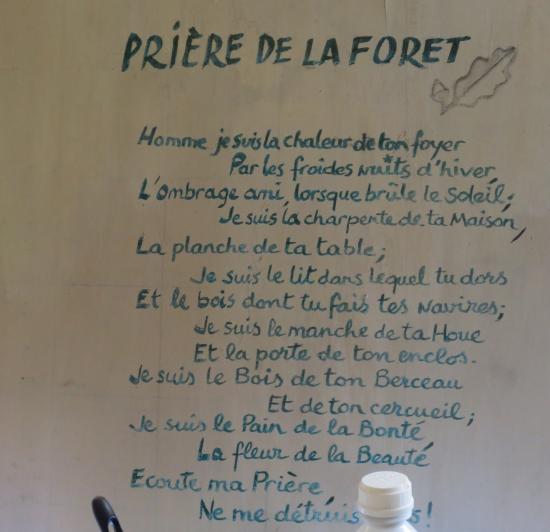 PRIÈRE DE LA FORET
Homme je suis la chaleur de ton foyer
Par les froides nuits d'hiver,
L'ombrage ami, lorsque brûle le Soleil;
Je suis la charpente de ta Maison,
La planche de ta table;
Je suis le lit dans lequel tu dors
Et le bois dont tu fais tes Navires;
Je suis le manche de ta Houe
Et la porte de ton enclos.
Je suis le Bois de ton Berceau
Et de ton cercueil;
Je suis le Pain de la Bonté,
La fleur de la Beauté
Ecoute ma Prière,
Ne me détruis !